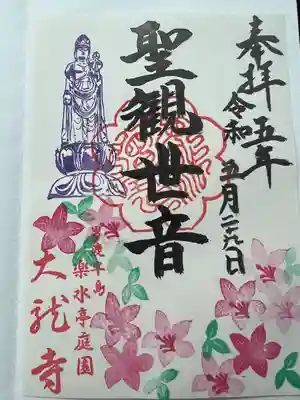 奉拝
令和五年
五月日
聖観世音
男鹿半島
樂水亭庭園
大龍寺